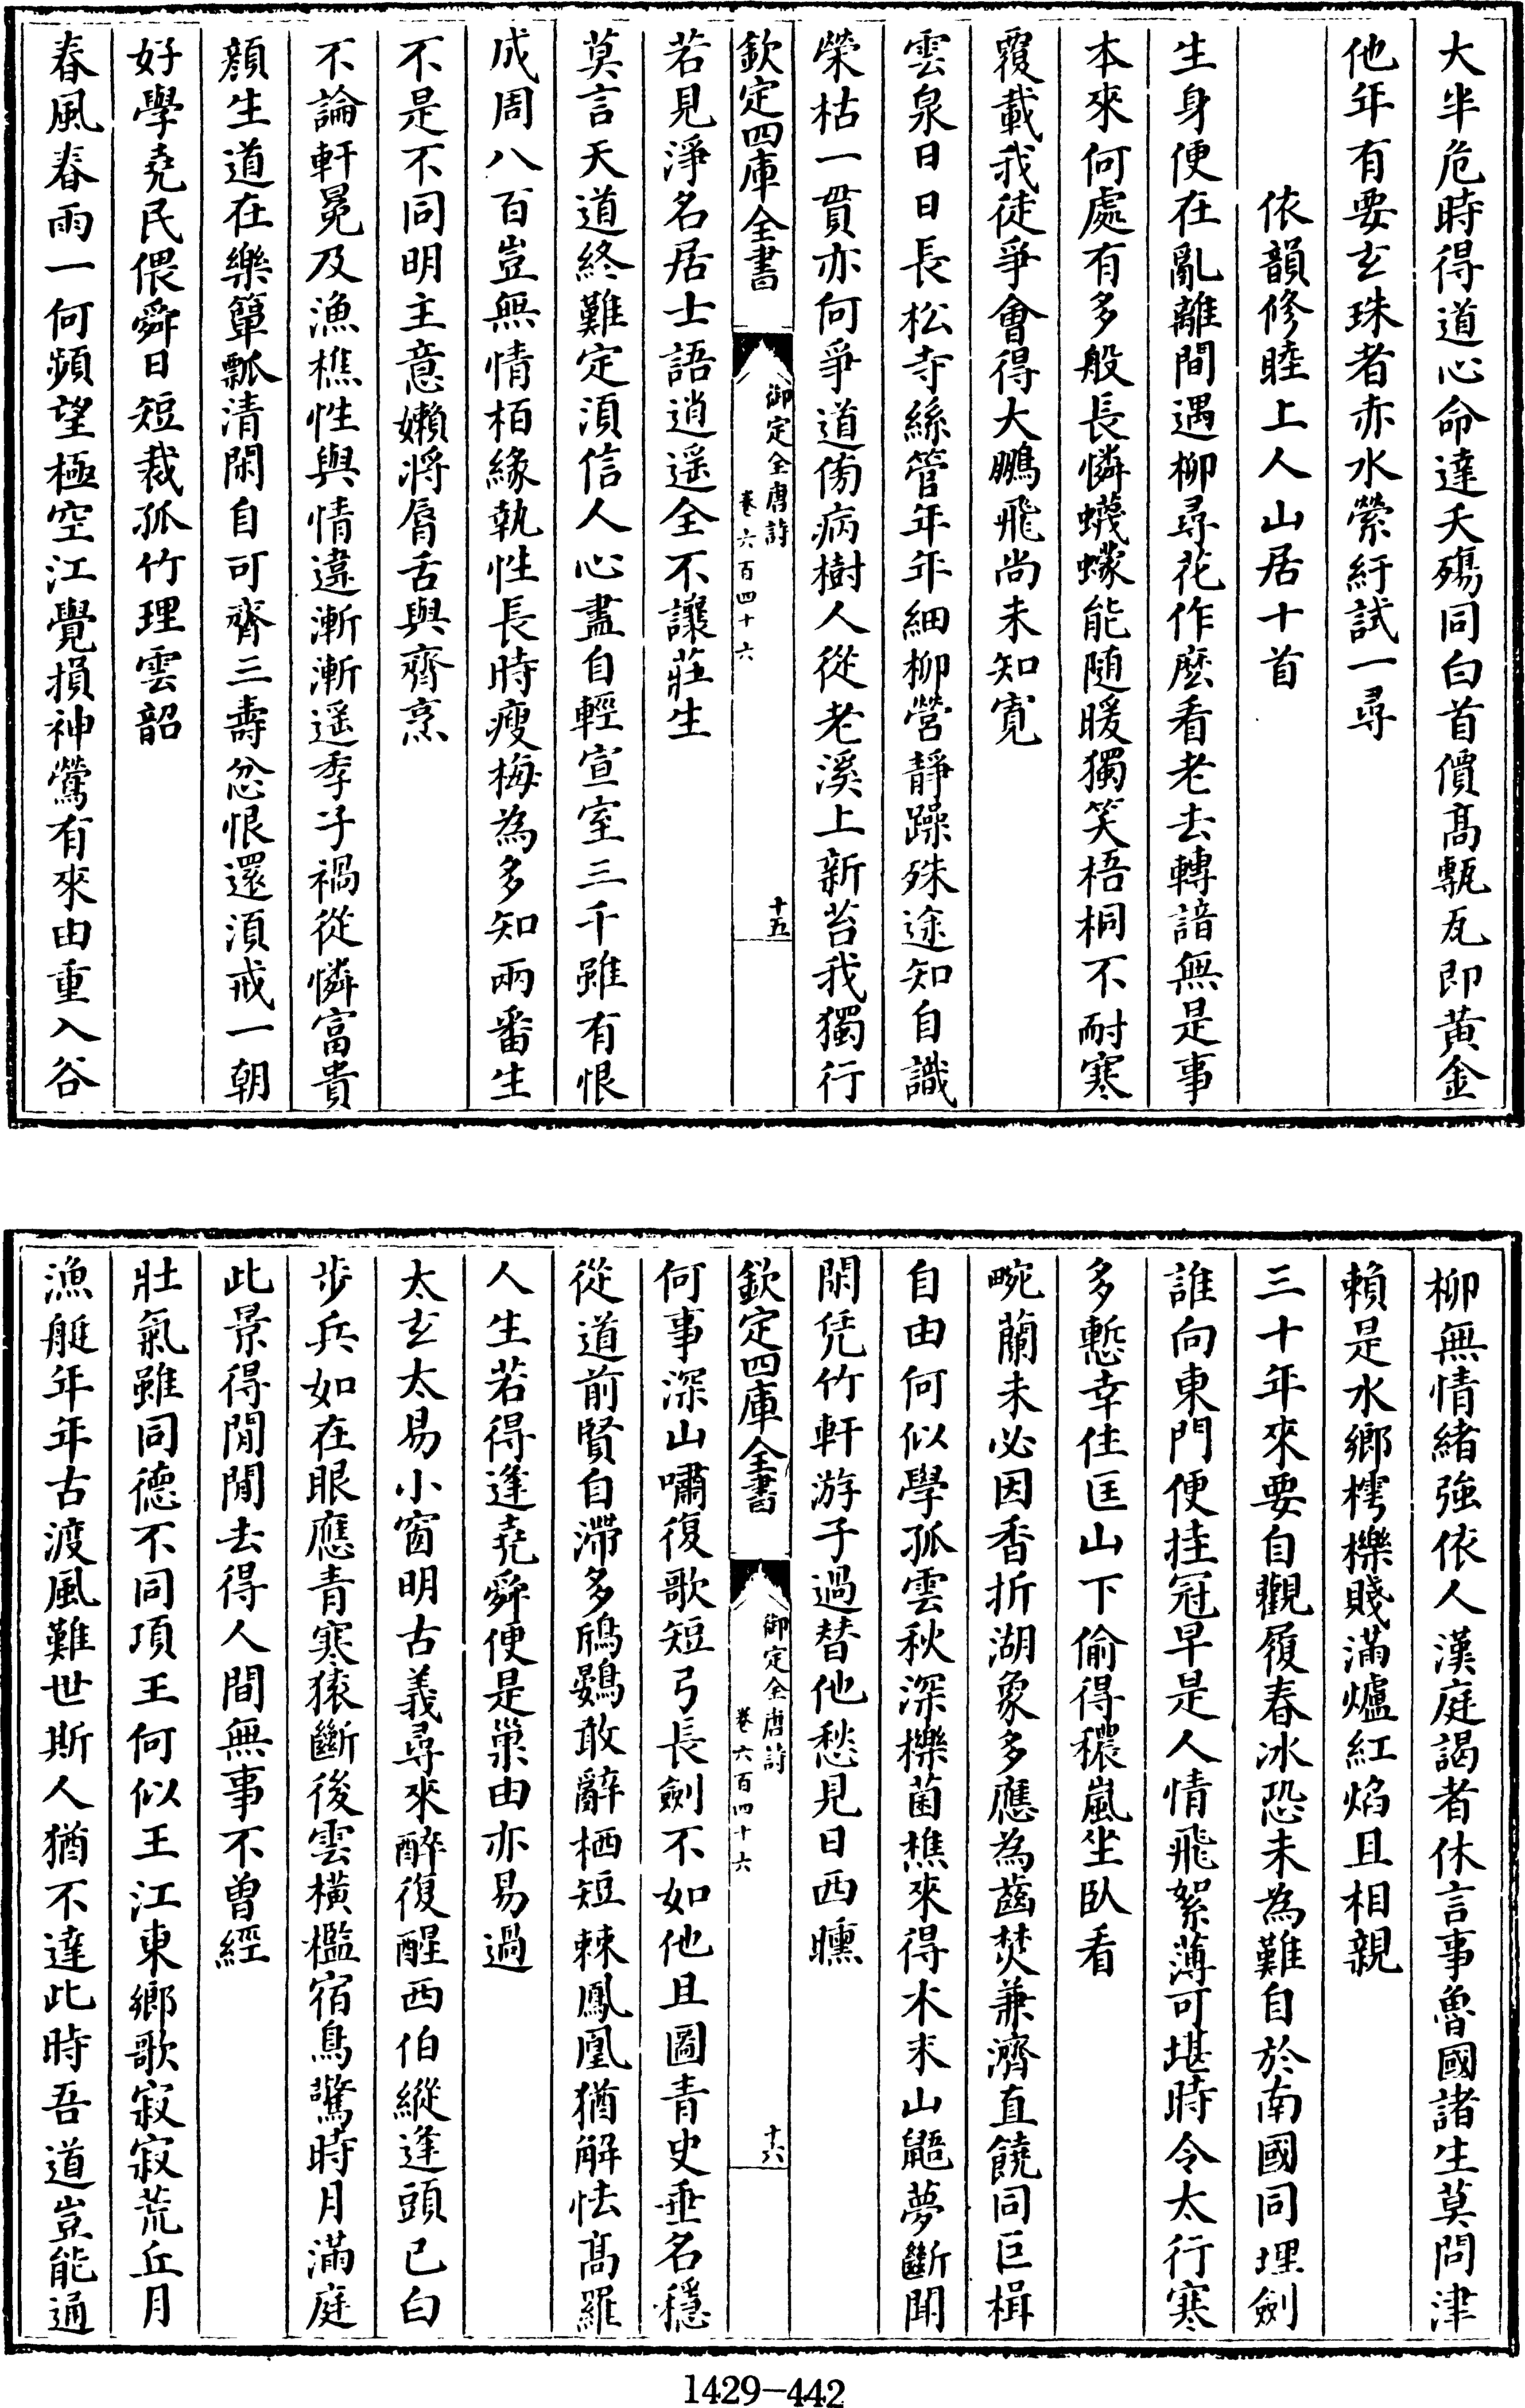 大半危時得道心命達夭殤同白首價高甎瓦即黃金
他年有要玄珠者赤水縈紆試一尋
依韻修睦上人山居十首
生身便在亂離間遇柳尋花作麽看老去轉諳無是事
本來何處有多般長憐蠛蠓能隨暖獨笑梧桐不耐寒
覆載我徒爭會得大鵬飛尚未知寬
雲泉日日長松寺絲管年年細柳營靜躁殊途知自識
榮枯一貫亦何爭道傍病樹人從老溪上新苔我獨行
欽定四庫全書
御定全唐詩
卷六百四十六
十五
若見淨名居士語逍遥全不讓莊生
莫言天道終難定須信人心盡自輕宣室三千雖有恨
成周八百豈無情栢緣執性長時瘦梅為多知兩番生
不是不同明主意嬾將脣舌與齊烹
不論軒冕及漁樵性與情違漸漸遥季子禍從憐富貴
顔生道在樂簞瓢清閑自可齊三壽忿恨還須戒一朝
好學堯民偎舜日短裁孤竹理雲韶
春風春雨一何頻望極空江覺損神鶯有來由重入谷
柳無情緒強依人漢庭謁者休言事魯國諸生莫問津
賴是水鄉樗櫟賤滿爐紅焰且相親
三十年來要自觀履春冰恐未為難自於南國同埋劍
誰向東門便挂冠早是人情飛絮薄可堪時令太行寒
多慙幸住匡山下偷得穠嵐坐卧看
畹蘭未必因香折湖象多應為齒焚兼濟直饒同巨楫
自由何似學孤雲秋深櫟菌樵來得木末山鼯夢斷聞
閑凭竹軒游子過替他愁見日西曛
欽定四庫全書
御定全唐詩
卷六百四十六
十六
何事深山嘯復歌短弓長劍不如他且圖青史垂名穩
從道前賢自滯多鴆鷃敢辭栖短棘鳳凰猶解怯高羅
人生若得逢堯舜便是巢由亦易過
太玄太易小窗明古義尋來醉復醒西伯縱逢頭已白
步兵如在眼應青寒猿斷後雲橫檻宿鳥驚時月滿庭
此景得閒閒去得人間無事不曾經
壯氣雖同德不同項王何似王江東鄉歌寂寂荒丘月
漁艇年年古渡風難世斯人猶不達此時吾道豈能通
1429-442